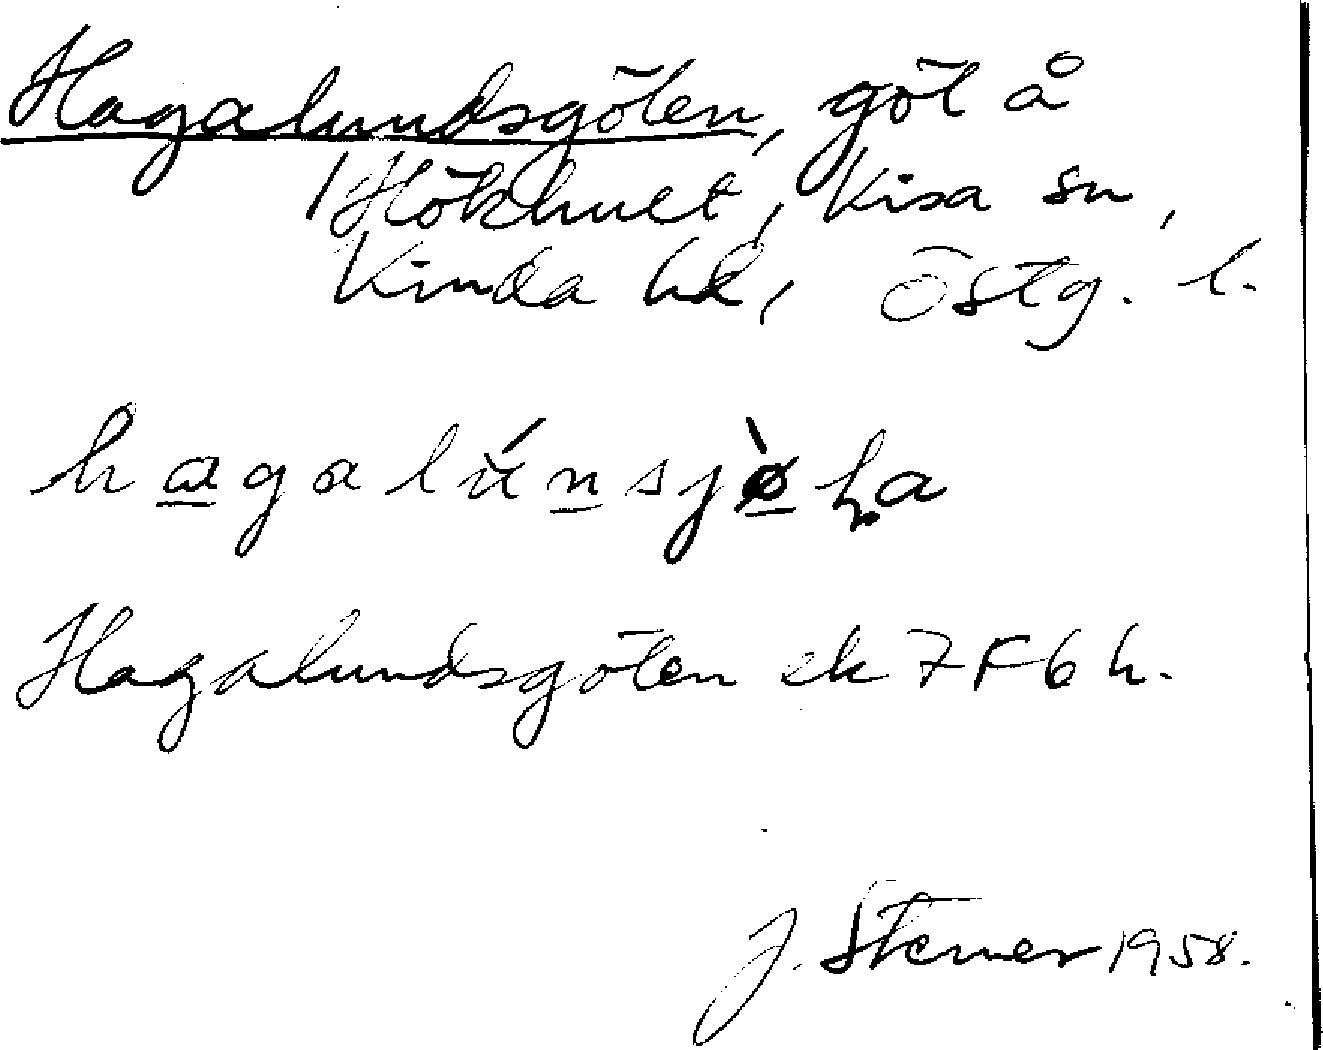 Hagalundsgölen, göl å
1 Hökhult, Kisa sn,
Kinda hd, Östg. l.
hagalúnsjø̀ɭa
Hagalundsgölen ek 7F6h.
J. Sterner 1958.